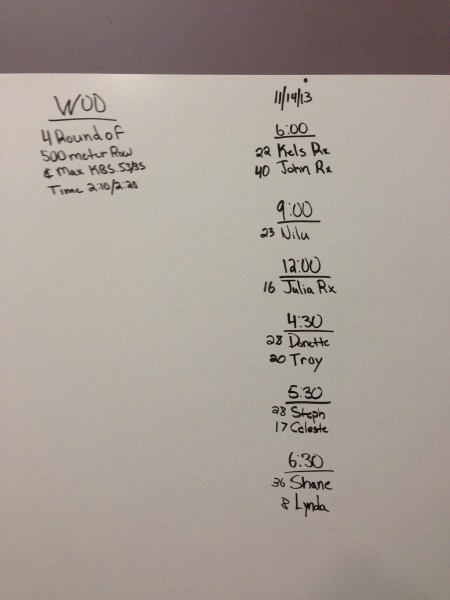 WOD
4 Round of
500 meter Row
& Max KBS 53/35
Time 2:10/2:20
11/14/13
6:00
22 Kels Rx
40 John Rx
9:00
23 Nilu
12:00
16 Julia Rx
4:30
28 Donette
20 Troy
5:30
28 Steph
17 Celeste
6:30
36 Shane
8 Lynda